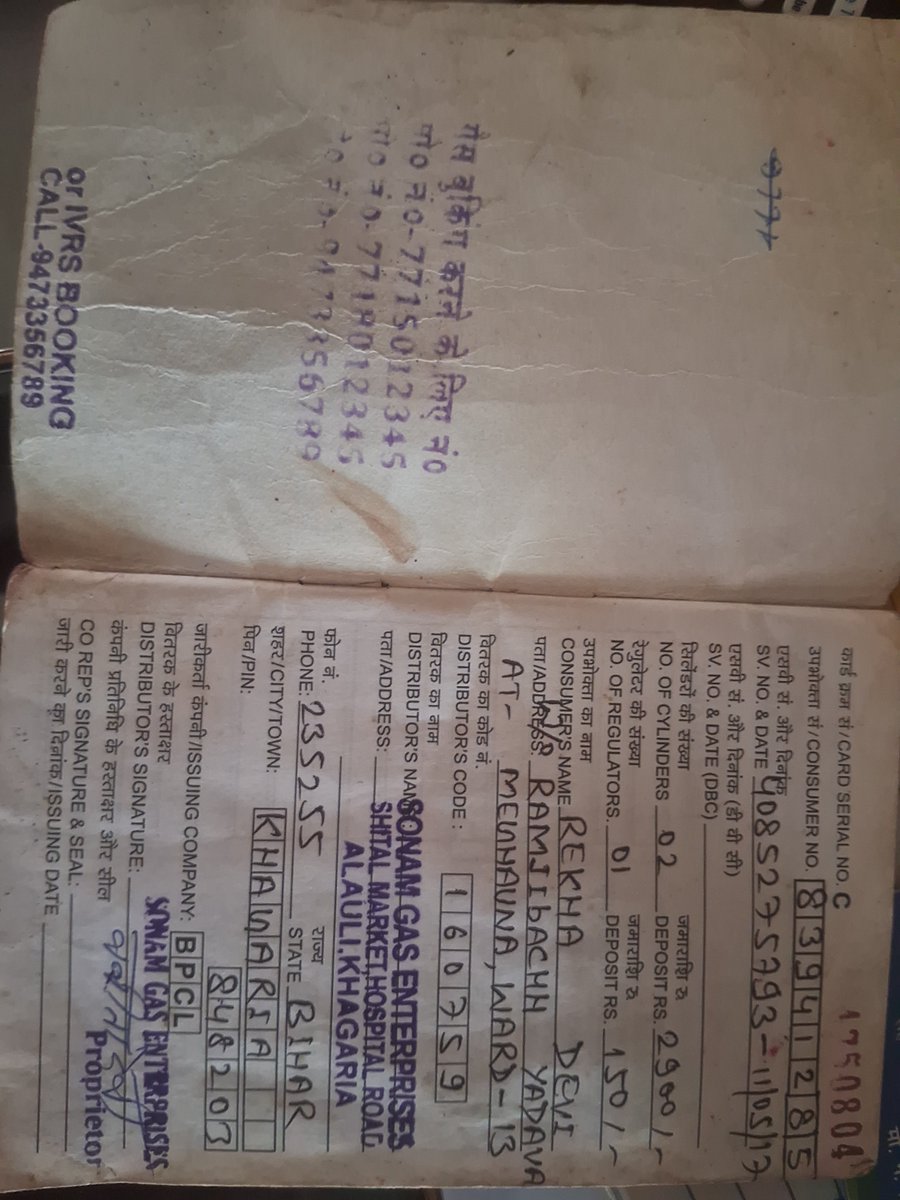 गैस बुकिंग करने के लिए नं०
मो० नं०-7715012345
मो० नं०-7718012345
मो० नं०-9473356789
or IVRS BOOKING
CALL-9473356789
कार्ड क्रम सं/CARD SERIAL NO. C 1750804
उपभोक्ता सं/CONSUMER NO. 83941285
एसवी सं. और दिनांक
SV. NO. & DATE 4085275793-11/05/17
एसवी सं. और दिनांक (डी बी सी)
SV. NO. & DATE (DBC)
सिलेंडरों की संख्या जमाराशि रु
NO. OF CYLINDERS 02 DEPOSIT RS. 2900/-
रेगुलेटर की संख्या जमाराशि रु
NO. OF REGULATORS. 01 DEPOSIT RS. 150/-
उपभोक्ता का नाम
CONSUMER'S NAME REKHA DEVI
पता/ADDRESS: RAMJIBACHH YADAVA
AT- MEGHAUNA, WARD-13
वितरक का कोड नं.
DISTRIBUTOR'S CODE : 160759
वितरक का नाम
DISTRIBUTOR'S NAME SONAM GAS ENTERPRISES
पता/ADDRESS: SHITAL MARKET,HOSPITAL ROAD
ALAULI.KHAGARIA
फोन नं. राज्य
PHONE: 235255 STATE BIHAR
शहर/CITY/TOWN: KHAGARIA
पिन/PIN: 848203
जारीकर्ता कंपनी/ISSUING COMPANY: BPCL
वितरक के हस्ताक्षर
DISTRIBUTOR'S SIGNATURE: SONAM GAS ENTERPRISES
कंपनी प्रतिनिधि के हस्ताक्षर और सील
Proprietor
CO REP'S SIGNATURE & SEAL:
जारी करने का दिनांक/ISSUING DATE